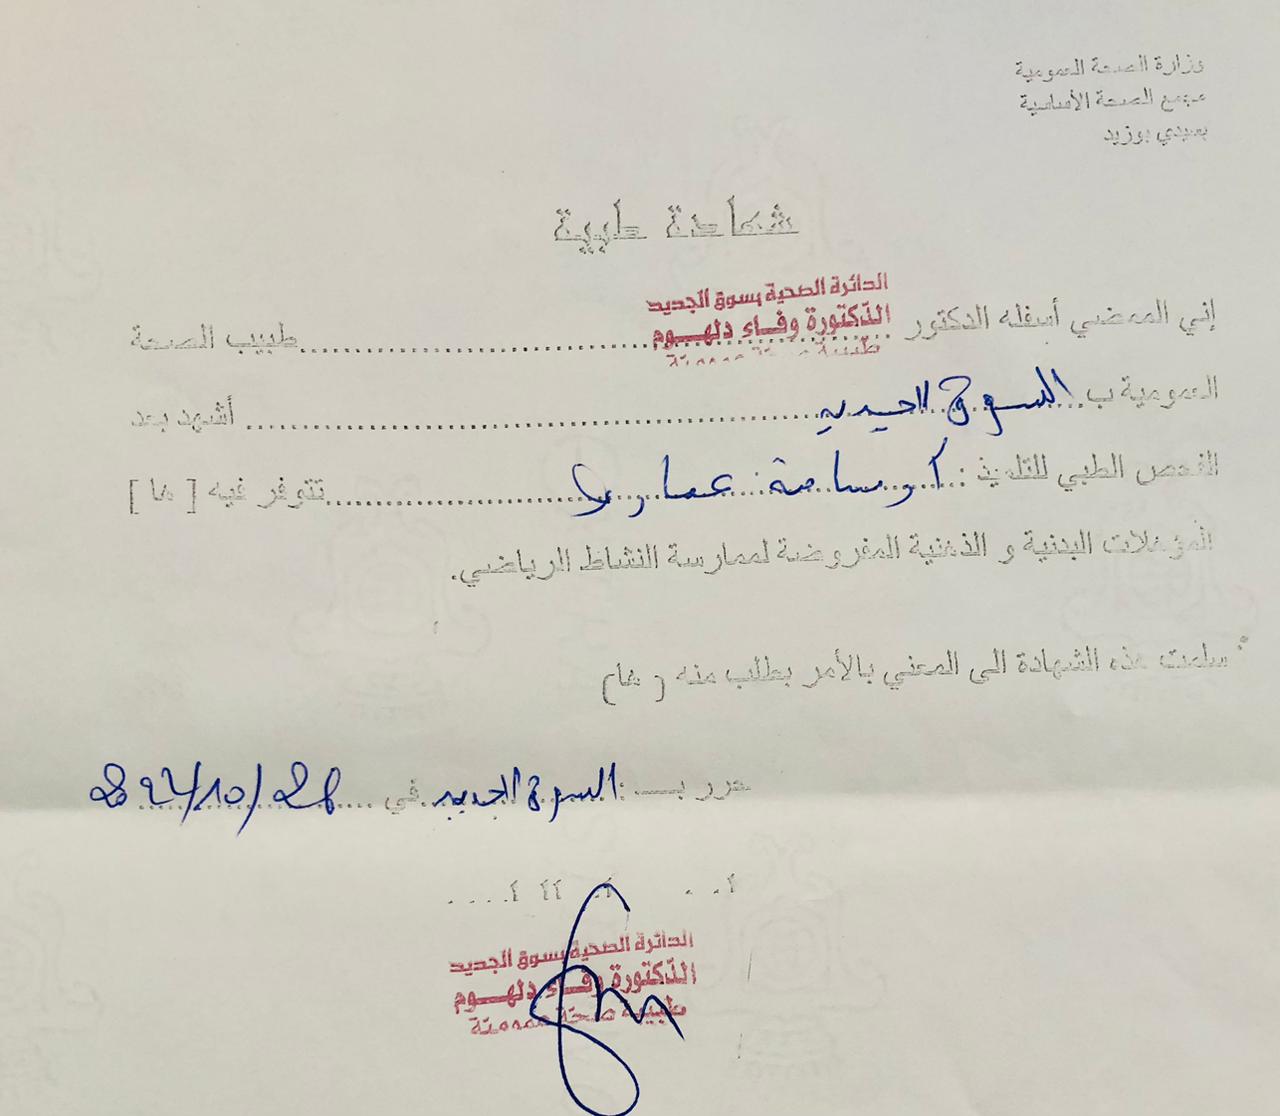 وزارة الصحة العمومية
مجمع الصحة الأساسية
بسيدي بوزيد
شهادة طبية
الدائرة الصحية بسوق الجديد
إني الممضي أسفله الدكتور الدّكتورة وفــاء دلهــوم طبيب الصحة
طبيبة صحّة عموميّة
العمومية ب السوق الجديد أشهد بعد
الفحص الطبي للتلميذ : عمارة تتوفر فيه [ ها ]
المؤهلات البدنية و الذهنية المفروضة لممارسة النشاط الرياضي.
سلمت هذه الشهادة الى المعني بالأمر بطلب منه ( ها )
حرر بـــ : السوق الجديد في 28/10/
الدائرة الصحية بسوق الجديد
الدّكتورة وفــاء دلهــوم
طبيبة صحّة عموميّة